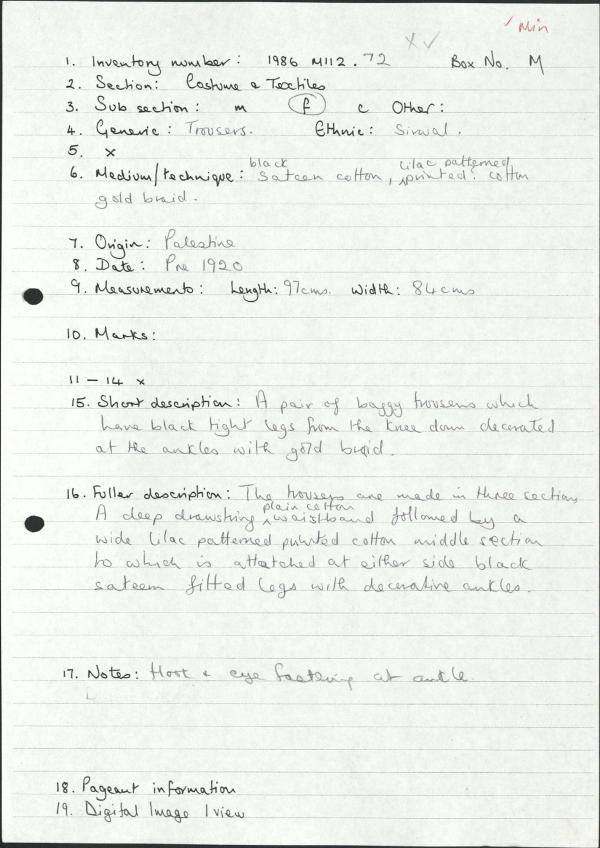 ✓ Min
x ✓
1. Inventory number : 1986 M112 . 72 Box No. M
2. Section: Costume & Textiles
3. Sub section : m f c Other :
4. Generic : Trousers. Ethnic : Sirwal .
5. x
black lilac patterned
6. Medium/technique : Sateen cotton, printed : cotton
gold braid .
7. Origin : Palestine
8. Date : Pre 1920
9. Measurements : Length : 97cms. Width : 84cms
10. Marks :
11 – 14 x
15. Short description : A pair of baggy trousers which
have black tight legs from the knee down decorated
at the ankles with gold braid.
16. Fuller description : The trousers are made in three sections
plain cotton
A deep drawstring waistband followed by a
wide lilac patterned printed cotton middle section
to which is attatched at either side black
sateen fitted legs with decorative ankles.
17. Notes : Hook & eye fastening at ankle.
18. Pageant information
19. Digital Image 1 view